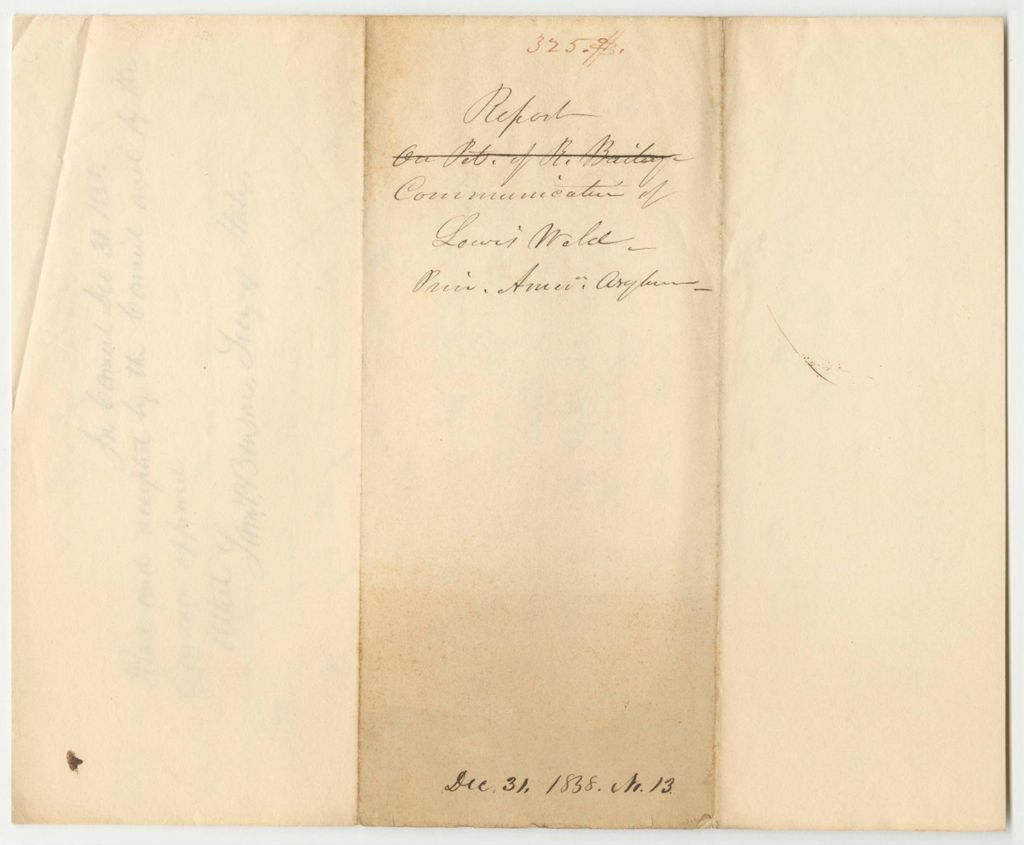 325.
Report
On Pet. of R. Bailey
Communication of
Lewis Weld
Prin. Amern. Asylum
Dec. 31. 1838. No. 13
In Council Dec 31 1838.
and accepted by the Council and by the
Governor approved
Attest
Saml P. Benson. Secy of State.